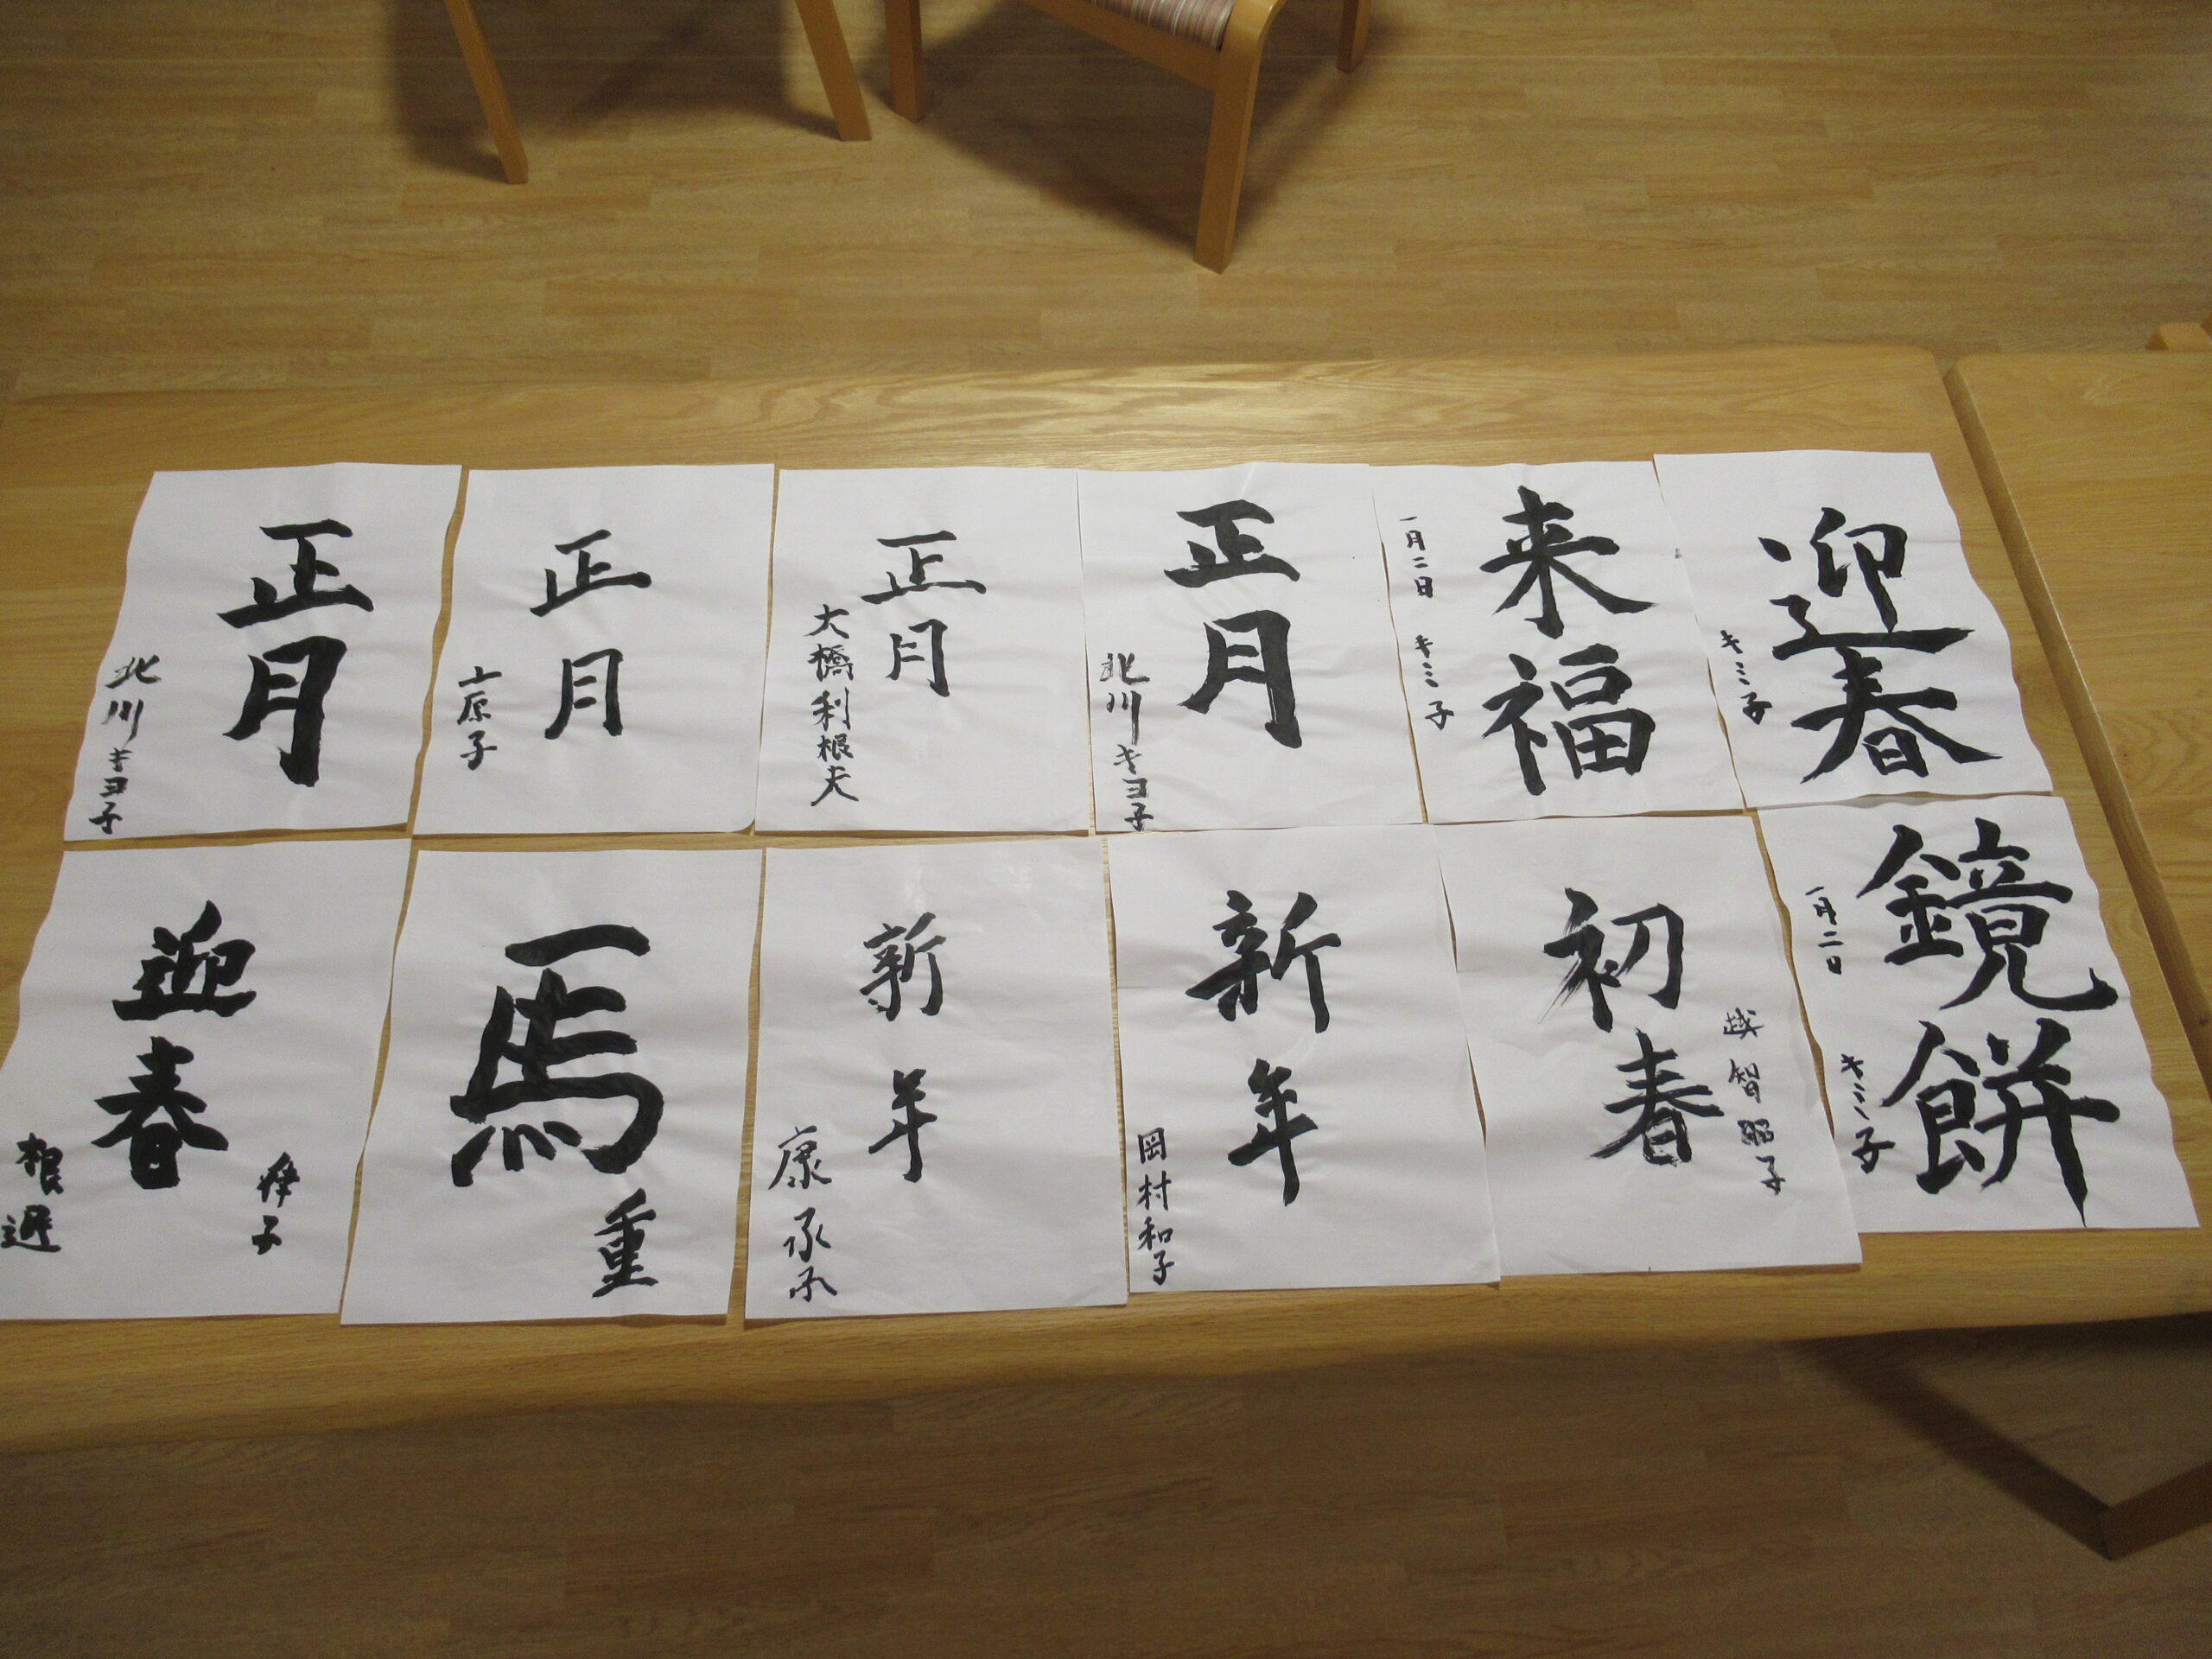 正月
北川キヨ子
正月
士原子
正月
大橋利根夫
正月
北川キヨ子
来福
一月二日 キミ子
迎春
キミ子
迎春
根廻
一馬
重
新年
康承
新年
岡村和子
初春
越智昭子
鏡餅
一月二日 キミ子